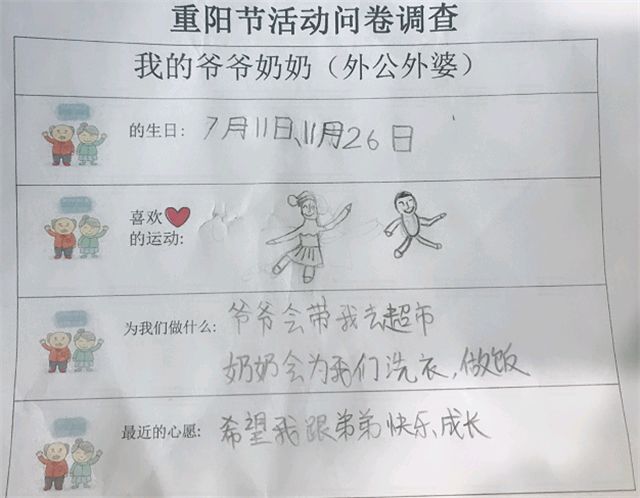 重阳节活动问卷调查
我的爷爷奶奶（外公外婆）
的生日: 7月11日、11月26日
喜欢
的运动:
为我们做什么: 爷爷会带我去超市
奶奶会为我们洗衣,做饭
最近的心愿: 希望我跟弟弟快乐成长